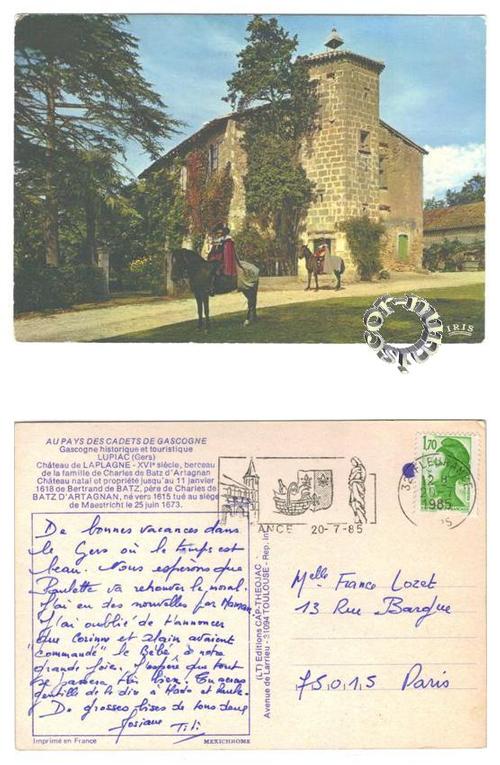 IRIS
AU PAYS DES CADETS DE GASCOGNE
Gascogne historique et touristique
LUPIAC (Gers)
Château de LAPLAGNE - XVIe siècle, berceau
de la famille de Charles de Batz d'Artagnan
Château natal et propriété jusqu'au 11 janvier
1618 de Bertrand de BATZ, père de Charles de
BATZ D'ARTAGNAN, né vers 1615 tué au siège
de Maestricht le 25 juin 1673.
De bonnes vacances dans
le Gers où le temps est
beau. Nous espérons que
Paulette va retrouver le moral.
J'ai eu des nouvelles par Maman
J'ai oublié de t'annoncer
que Corinne et Alain avaient
"commandé" le Bébé, à notre
grande joie. J'espère que tout
se passera très bien. Tu seras
gentille de le dire à Mado et Paule.
De grosses bises de tous deux
Josiane Titi
Imprimé en France
MEXICHROME
(LT) Editions CAP-THEOJAC
Avenue de Larrieu - 31094 TOULOUSE - Rep. Int
ANCE 20-7-85
1,70
1985
Melle France Lozet
13 Rue Bargue
75.0.1.5 Paris